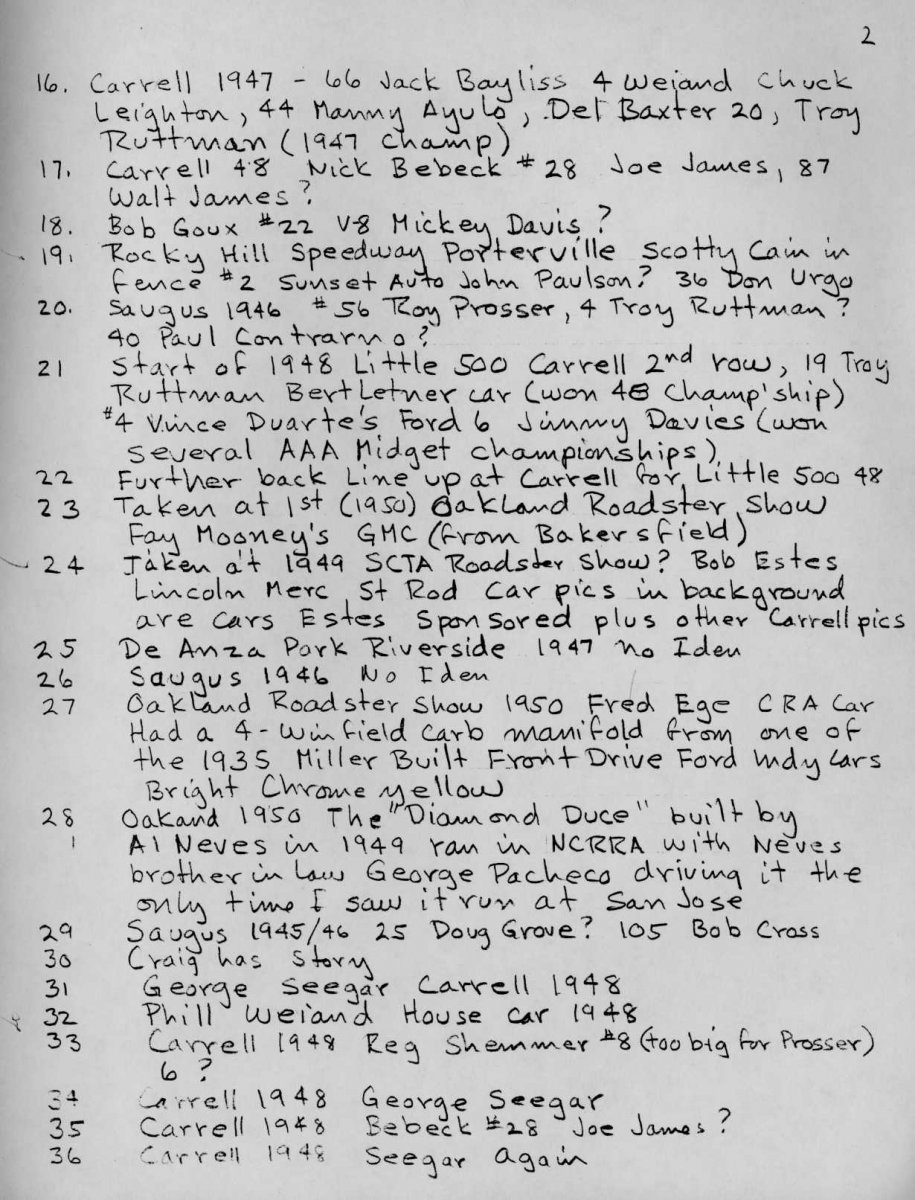 2
16. Carrell 1947 - 66 Jack Bayliss 4 Weiand Chuck
Leighton, 44 Manny Ayulo, Del Baxter 20, Troy
Ruttman (1947 champ)
17. Carrell 48 Nick Bebeck #28 Joe James, 87
Walt James?
18. Bob Goux #22 V-8 Mickey Davis?
19. Rocky Hill Speedway Porterville Scotty Cain in
fence #2 Sunset Auto John Paulson? 36 Don Urgo
20. Saugus 1946 #56 Roy Prosser, 4 Troy Ruttman?
40 Paul Contrarno?
21 Start of 1948 Little 500 Carrell 2nd row, 19 Troy
Ruttman Bert Letner car (won 48 Champ'ship)
#4 Vince Duarte's Ford 6 Jimmy Davies (won
several AAA Midget championships)
22 Further back Line up at Carrell for Little 500 48
23 Taken at 1st (1950) Oakland Roadster Show
Fay Mooney's GMC (from Bakersfield)
24 Taken at 1949 SCTA Roadster Show? Bob Estes
Lincoln Merc St Rod Car pics in background
are cars Estes Sponsored plus other Carrell pics
25 De Anza Park Riverside 1947 No Iden
26 Saugus 1946 No Iden
27 Oakland Roadster Show 1950 Fred Ege CRA Car
Had a 4-Winfield Carb manifold from one of
the 1935 Miller Built Front Drive Ford Indy Cars
Bright Chrome yellow
28 Oakand 1950 The "Diamond Duce" built by
Al Neves in 1949 ran in NCRRA with Neves
brother in law George Pacheco driving it the
only time I saw it run at San Jose
29 Saugus 1945/46 25 Doug Grove? 105 Bob Cross
30 Craig has story
31 George Seegar Carrell 1948
32 Phill Weiand House car 1948
33 Carrell 1948 Reg Shemmer #8 (too big for Prosser)
6?
34 Carrell 1948 George Seegar
35 Carrell 1948 Bebeck #28 Joe James?
36 Carrell 1948 Seegar Again